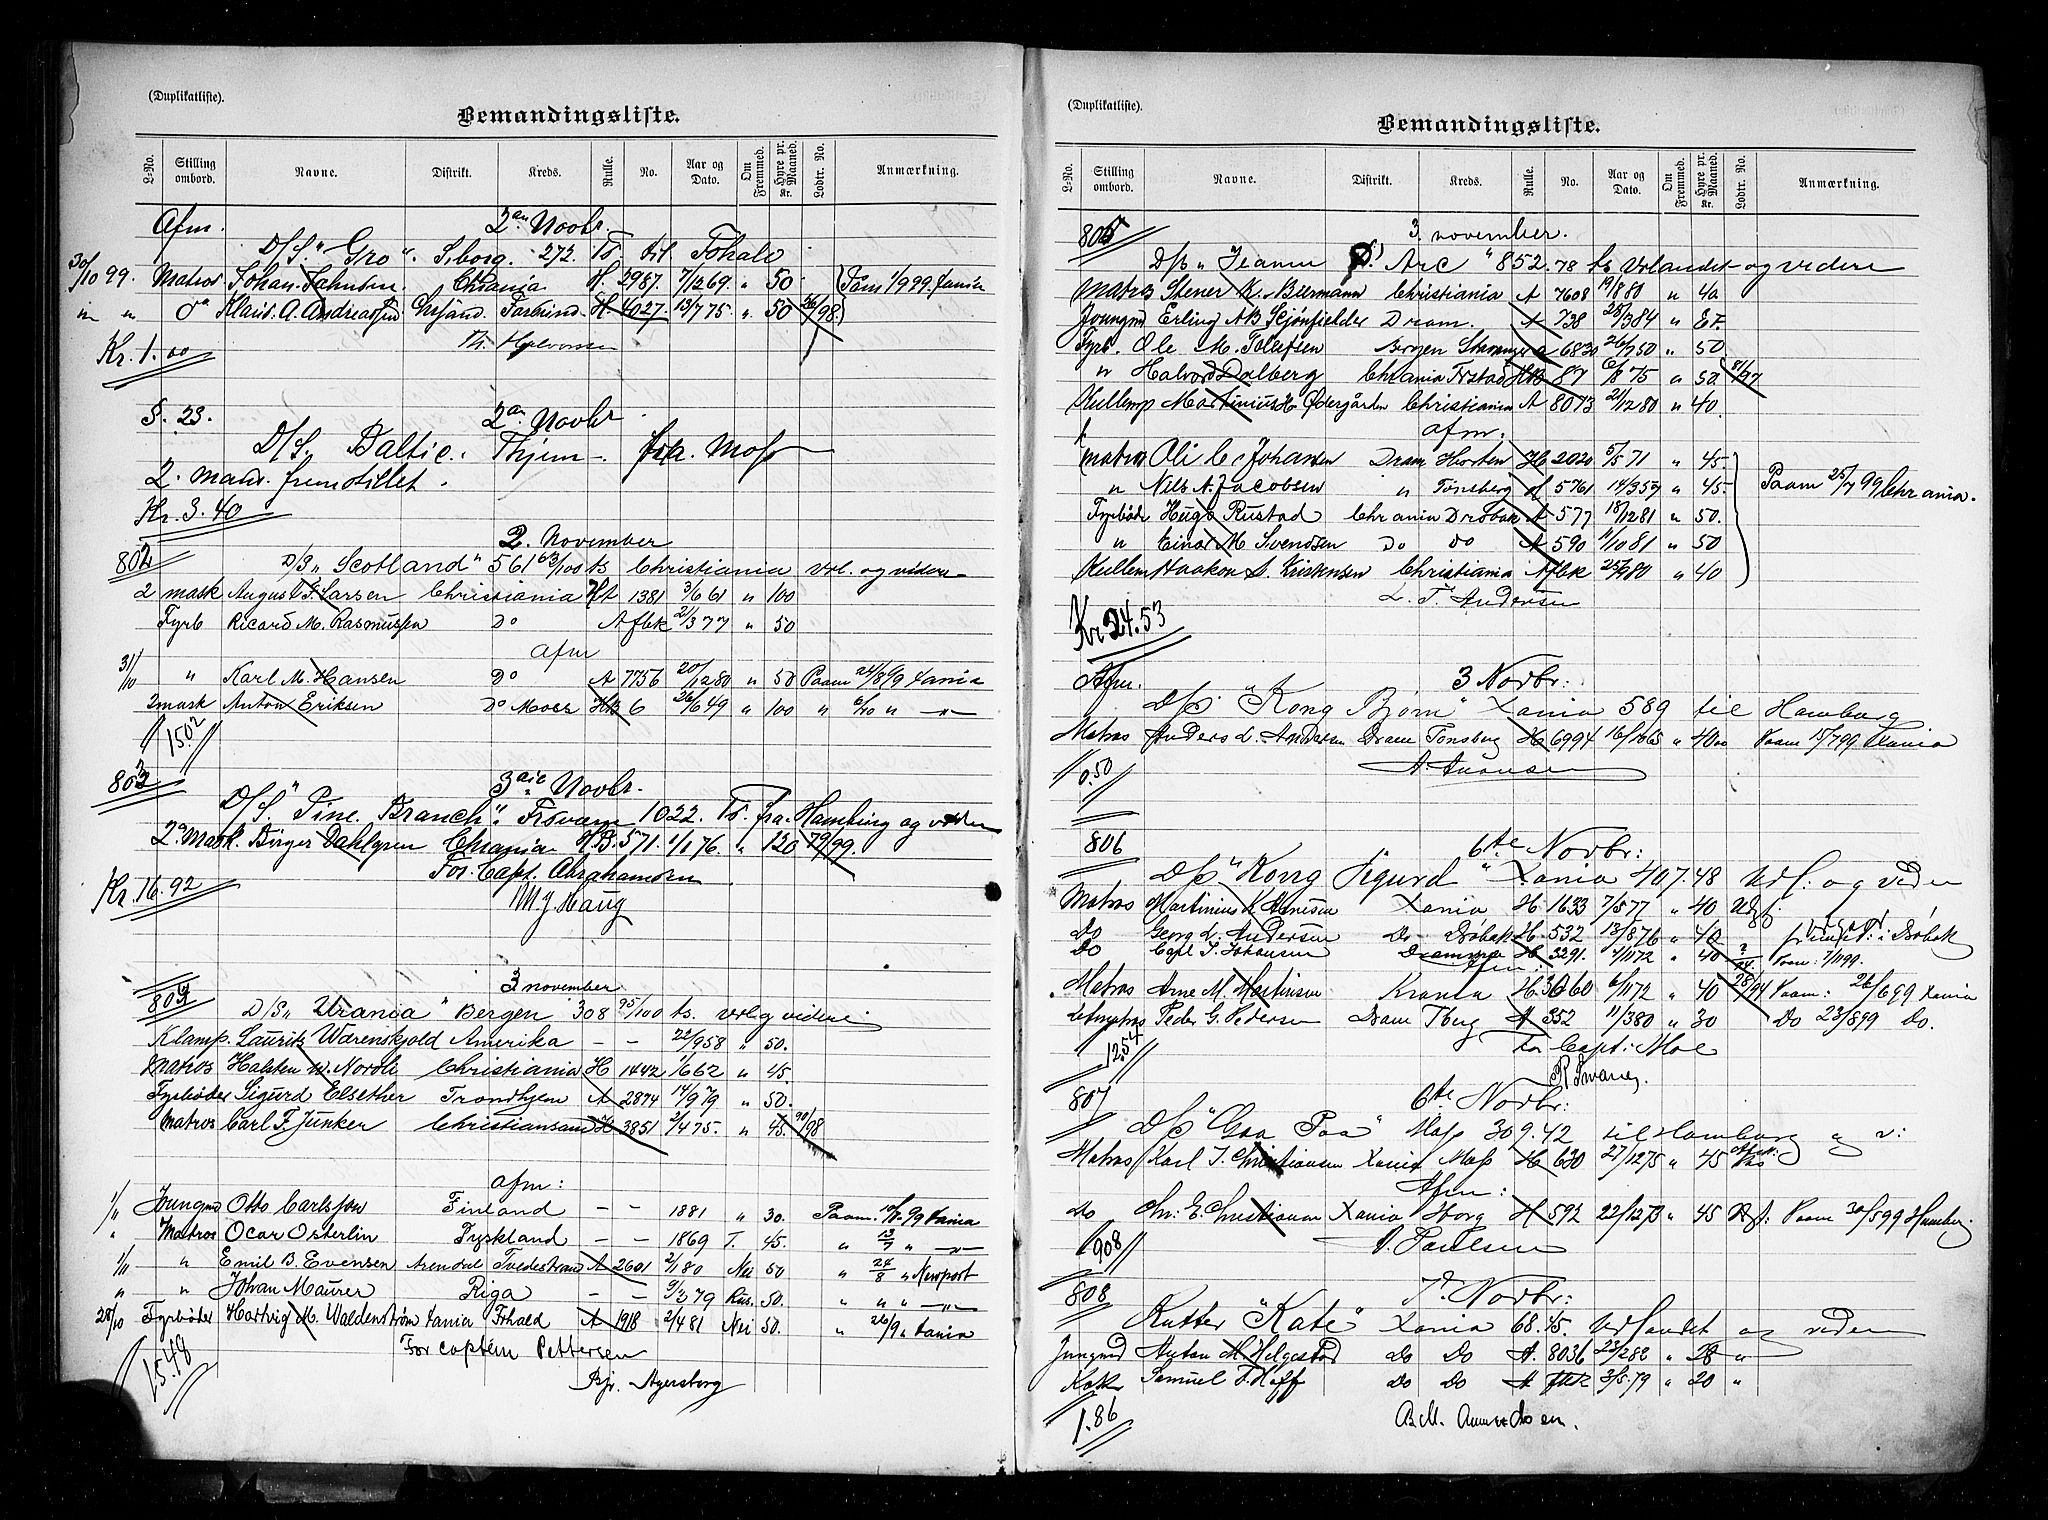 (Duplikatliste).
Bemandingsliste.
L-No. Stilling ombord. Navne. Distrikt. Kreds. Rulle. No. Aar og Dato. Om Fremmed. Hyre pr. Maaned. Kr. Lodtr. No. Anmærkning.
Afm. 2en Novbr.
D/S. "Gro". S.borg. 272. To til
30/10 99. Matros Johan Chrania H. 2987. 7/12 69 " 50 Paam 1/9 99 Xania
" " Do Klaus. A. Andreassen Chrsand. Farsund H. 4027. 13/7 75 " 50 26/98
Th. Halvorsen
Kr. 1.00
§. 23. 2en Novbr.
D/S. Baltic. Thjem fra. Moss
2. mand. fremstillet.
Kr. 3.40
802 2. November
D/S "Scotland" 561 63/100 ts Christiania Utl. og videre
2 mask August F. Larsen Christiania HA 1381 3/6 61 " 100
Fyrb Ricard M. Rasmussen Do A flbk 21/3 77 " 50
afm
31/10 " Karl M. Hansen Do A 7756 20/12 80 " 50 Paam 24/8 99 Xania
2 mask Anton Eriksen Do Moss HB 6 26/6 49 " 100 " 6/10 " — " —
15.02
803 3die Novbr.
D/S. "Pine Branch". 1022. To. fra. Hamburg og viden
2. Mask. Birger Dahlgren Chrania H.B. 571. 1/1 76. " 120 79/99.
For Capt. Abrahamsen
M. J. Haug
Kr. 16.92
804 3 november
D/S "Urania" Bergen 308 95/100 ts. utl og videre
K lamp. Lauritz Wærenskjold Amerika — — 22/9 58 " 50.
Matros Halsten W. Nordli Christiania H 1442 1/6 62 " 45.
Fyrbøder Sigurd Elsether Trondhjem A 2874 14/9 79 " 50.
Matros Carl F. Junker Christiansand H 3851 2/4 75. " 45. 90/98
afm:
1/11 Jungmd Otto Carlsson Finland — — 1881 " 30. Paam. 99 Xania
" Matros Ocar Osterlin Tyskland — — 1869 T. 45. " 13/7 " — " —
1/11 " Emil B. Evensen Arendal Tvedestrand A 2601 2/1 80 Nei 50 " 24/8 " Newport
" " Johan Maurer Riga — — 9/3 79 Rus. 50. " " " — " —
28/10 Fyrbøder Hartvig M. Waldenstrøm Xania Fhald A 1918 2/4 81 Nei 50. " 26/9 " Xania
For captein Pettersen
Bj. Agersborg
15.48
(Duplikatliste).
Bemandingsliste.
L-No. Stilling ombord. Navne. Distrikt. Kreds. Rulle. No. Aar og Dato. Om Fremmed. Hyre pr. Maaned. Kr. Lodtr. No. Anmærkning.
805 3. november.
D/S "Jeanne D' Arc" 852.78 ts Utlandet og videre
Matros Stener K. Biermann Christiania A 7608 19/8 80 " 40
Joungmd Erling AB Schjønfjelder Dram. A 738 28/3 84 " Et.
Fyrb. Ole M. Tollefsen Bergen Stavanger A 6830 26/9 50 " 50
" Halvord Dalberg Chrania Frstad HB 87 6/8 75 " 50 81/97
Kullemp Martinius H. Ødergården Christiania A 8073 21/12 80 " 40.
afm.
Matros Oli C. Johansen Dram Horten H 2020 5/5 71 " 45.
" Nils A. Jacobsen " Tönsberg H 5761 14/3 57 " 45. Paam 25/7 99 Chrania.
Fyrbøde Hugo Rustad Chrania Drøbak A 577 18/12 81 " 50.
" Einar M. Svendsen Do do A 590 11/10 81 " 50
Kullem Haakon S. Kristensen Christiania A flbk 25/9 80 " 40
L. T. Andersen
Kr 24.53
Afm. 3 Novbr:
D/S: "Kong Bjørn" Xania 589 til Hamburg
Matros Anders L. Andersen Dram Tonsberg H 6994 16/10 65 " 40 00 Paam 15/7 99 Xania
0.50
806 6te Novbr:
D/S "Kong Sigurd" Xania 407.48 Udl: og viden
Matros Martinius K. Arnesen Xania H. 1633 7/5 77 " 40 Udf.
Do Georg L. Andersen Do Drøbak H. 532 13/8 76 " 40 i Drøbak
Do Carl I. Johansen Drammen H 3291. 4/11 72 " 40 Paam: 1/11 99.
Afm:
Matros Arne M. Martinsen Krania H 3060 6/11 72 " 40 28/94 Paam: 26/6 99 Xania
Letmatros Peder G. Pedersen Dram Tberg A 352 11/3 80 " 30 Do 23/8 99 Do.
For Capt: Moe
12.54
807 6te Novbr:
D/S "Gaa Paa" Moss 309.42 til Hamburg og v:
Matros Karl J. Christiansen Xania Moss H 630 27/12 75 " 45
Afm:
Do Chr: E. Christiansen Xania H 592 22/12 73 " 45 Paam 30/5 99 Hamburg
P. Paulsen
9.08
808 7de Novbr:
Kutter "Kate" Xania 68.45. Udlandet og viden
Jungmd Anton M. Helgestad Do Do A. 8036 23/2 82 " 28 "
Kok Samuel F. Hoff Do Do A flbk 3/5 79 " 20 "
B. M. Amundsen.
1.86